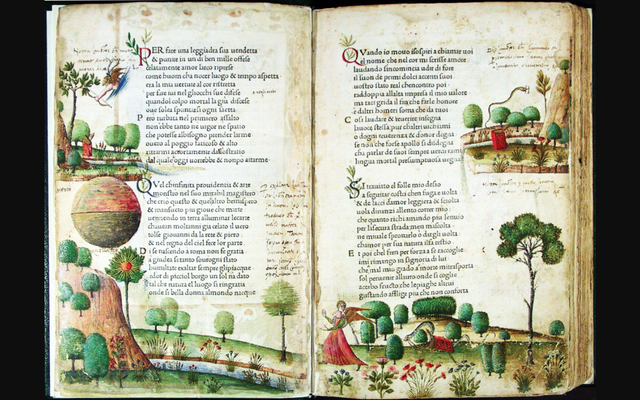 PER fare una leggiadra sua uendetta
& punire in un di ben mille offese
celatamente amor larco riprese
come huom che nocer luogo & tempo aspetta
era la mia uertute al cor ristretta
per fare iui nel gliocchi sue difese
quando colpo mortal la giu discese
oue solea spuntarsi ogni saetta
Pero turbata nel primiero assalto
non ebbe tanto ne uigor ne spatio
che potesse albisogno prender larme
ouero al poggio faticoso & alto
accortamente dallo stratio
dal quale oggi uorrebbe & non po aitarme
QVel chinfinita prouidentia & arte
monstro nel suo mirabil magistero
che crio questo & quelaltro hemispero
& mansueto piu gioue che marte
uegnendo in terra alluminar le carte
chauean moltanni gia celato il uero
tolse giouanni da la rete & piero
& nel regno del ciel fece lor parte
Di se nascendo a roma non fe gratia
a giudea si tanto souro ogni stato
humiltate exaltar sempre gli piacque
& or di picciol borgo un sol na dato
tal che natura el luogo si ringratia
onde si bella donna al mondo nacque
QVando io mouo i sospiri a chiamar uoi
el nome che nel cor mi scrisse amore
laudando sincomincia udir di fore
il suon de primi dolci accenti suoi
uostro stato real chencontro poi
raddoppia allalta impresa il mio ualore
ma taci grida il fin che farle honore
e daltri homeri soma che da tuoi
Cosi laudare & reuerire insegna
la uoce stessa pur chaltri ui chiami
o dogni reuerenza & donor degna
se non che forse apollo si disdegna
cha parlar de suoi sempre uerdi rami
lingua mortal presumptuosa uegna
Si trauiato el folle mio desio
a seguitar costa chen fuga e uolta
& de lacci damor leggiera & sciolta
uola dinanzi allento correr mio
che quanto richiamando piu lenuio
per la secura strada men mascolta
ne mi uale spronarlo o dargli uolta
chamor per sua natura il fa restio
Et poi chel fren per forza a se raccoglie
i mi rimango in signoria di lui
che mal mio grado a morte mi trasporta
sol per uenire allauro onde si coglie
acerbo frutto che le piaghe altrui
gustando afflige piu che non conforta